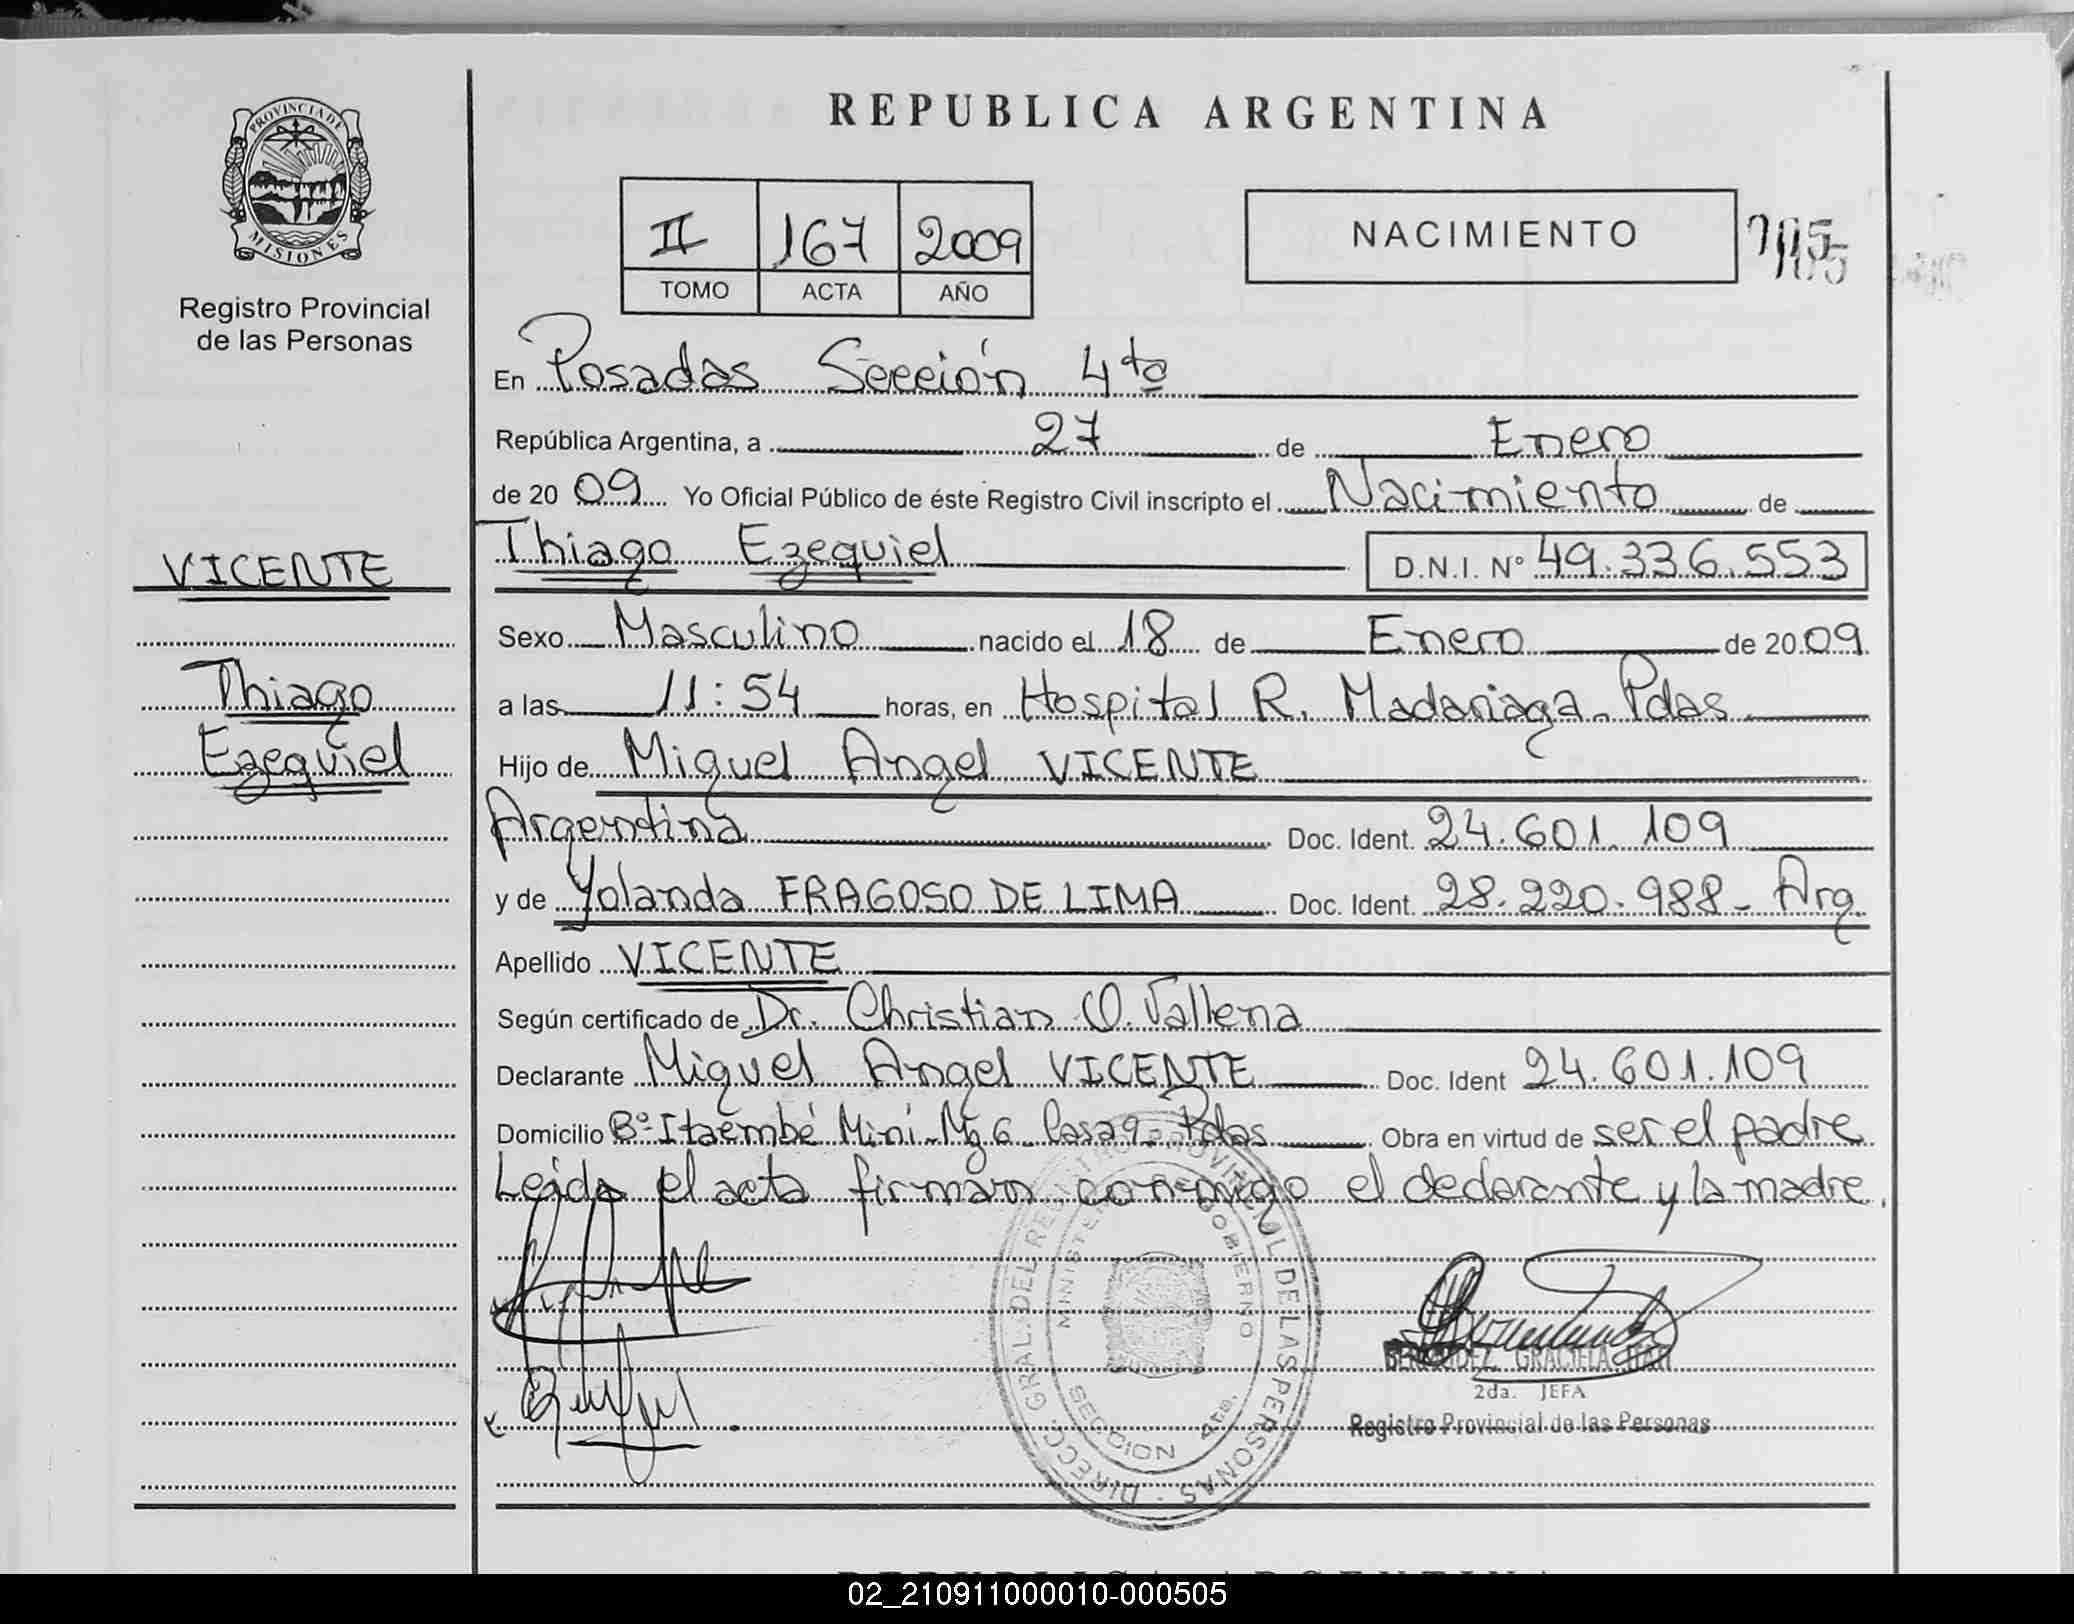 PROVINCIA DE
MISIONES
Registro Provincial
de las Personas
VICENTE
Thiago
Ezequiel
REPUBLICA ARGENTINA
II 167 2009
TOMO ACTA AÑO
NACIMIENTO
En Posadas Sección 4ta
República Argentina, a 27 de Enero
de 20 09 Yo Oficial Público de éste Registro Civil inscripto el Nacimiento de
Thiago Ezequiel D.N.I. Nº 49.336.553
Sexo Masculino nacido el 18 de Enero de 20 09
a las 11:54 horas, en Hospital R. Madariaga - Pdas
Hijo de Miguel Angel VICENTE
Argentina Doc. Ident. 24.601.109
y de Yolanda FRAGOSO DE LIMA Doc. Ident. 28.220.988 - Arg.
Apellido VICENTE
Según certificado de Dr. Christian O. Vallena
Declarante Miguel Angel VICENTE Doc. Ident 24.601.109
Domicilio Bº Itaembé Miní - Mz 6 - Casa 9 - Pdas Obra en virtud de ser el padre
Leída el acta firman conmigo el declarante y la madre.
DIRECC. GRAL. DEL REGISTRO PROVINCIAL DE LAS PERSONAS
MINISTERIO DE GOBIERNO
SECCION 4ta.
GRACIELA
2da. JEFA
Registro Provincial de las Personas
REPUBLICA ARGENTINA
02_210911000010-000505